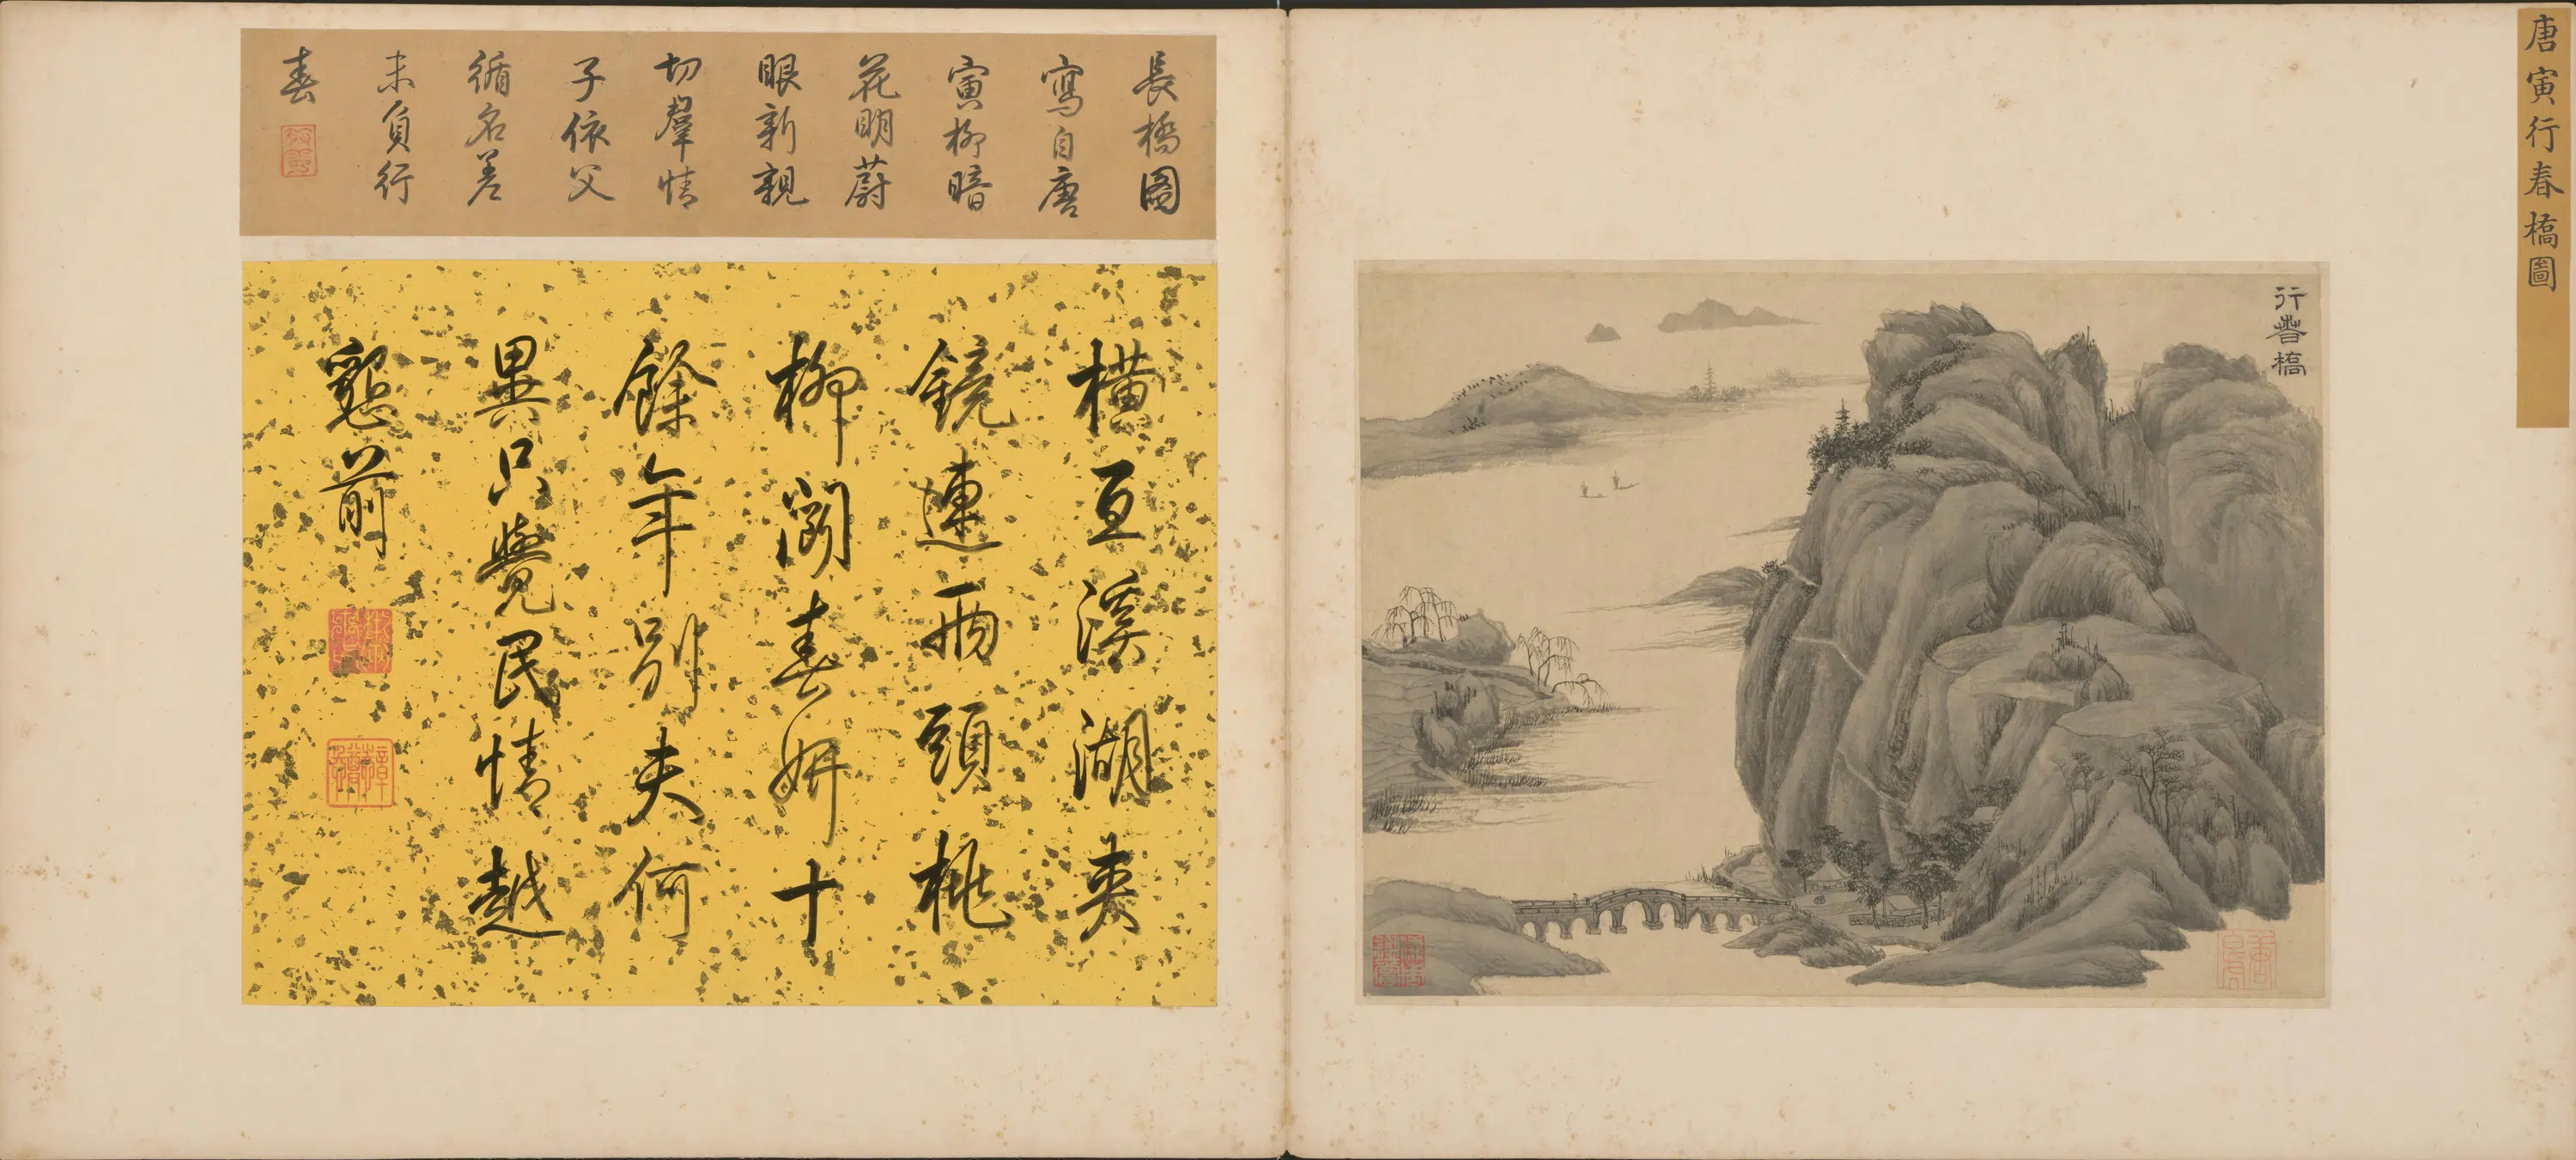 唐寅行春橋圖
行春橋
長橋圖
寫自唐
寅柳暗
花明蔚
眼新親
切羣情
子依父
循名差
未負行
春
橫亙溪湖夾
鏡連兩頭桃
柳鬧春妍十
餘年別夫何
異只覺民情越
懇前